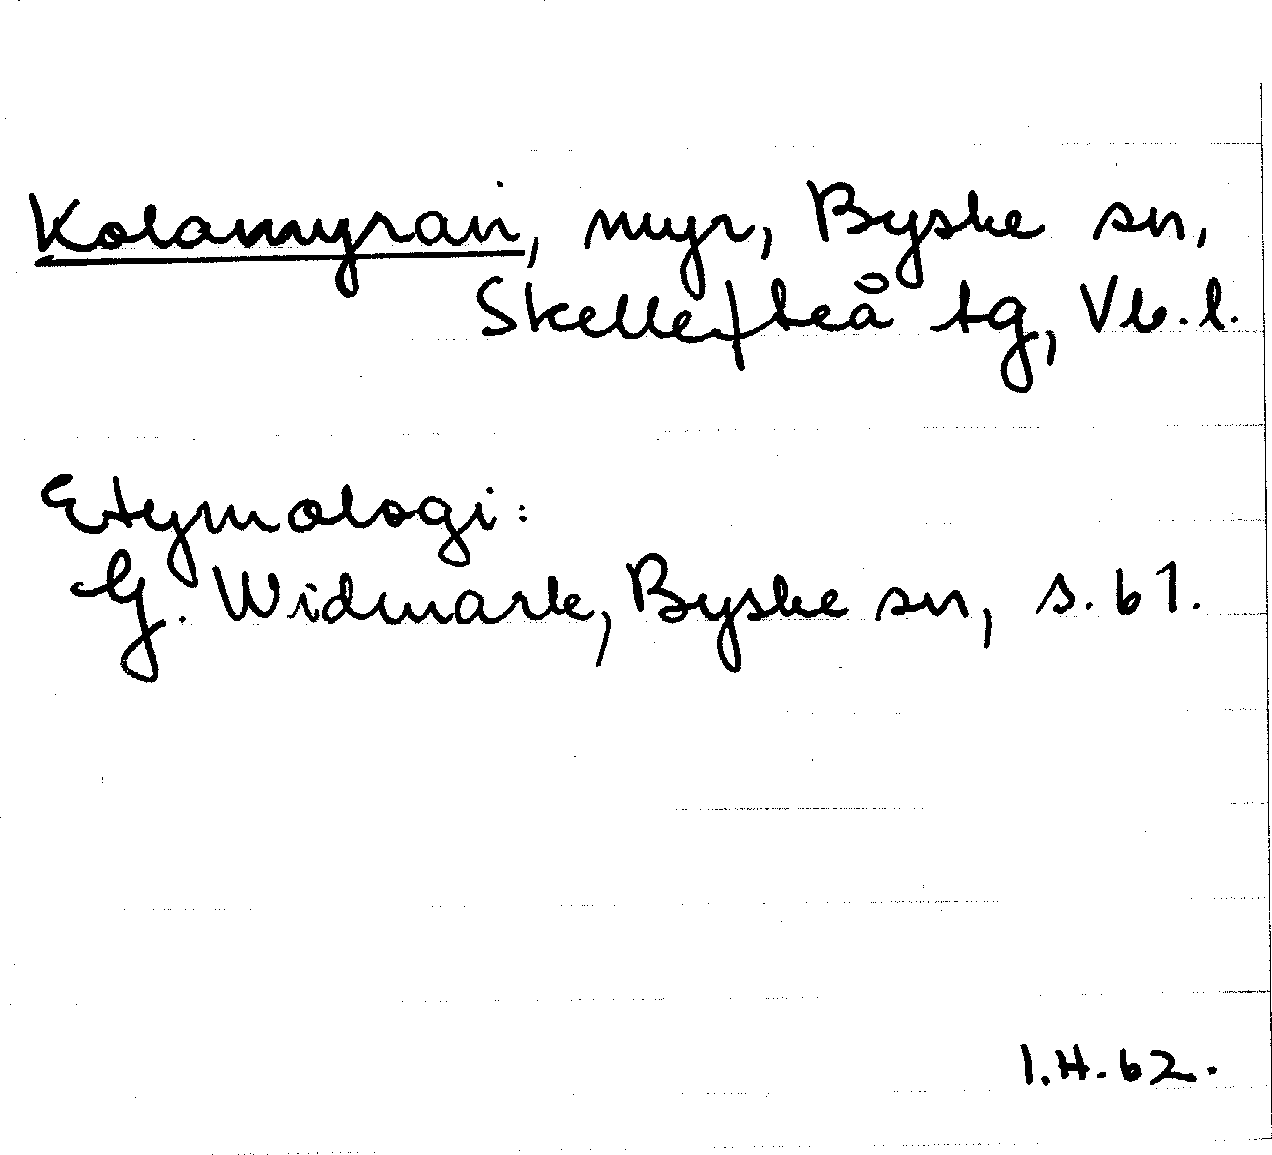 Kolamyran, myr, Byske sn,
Skellefteå tg, Vb. l.
Etymologi:
G. Widmark, Byske sn, s. 61.
I. H. 62.